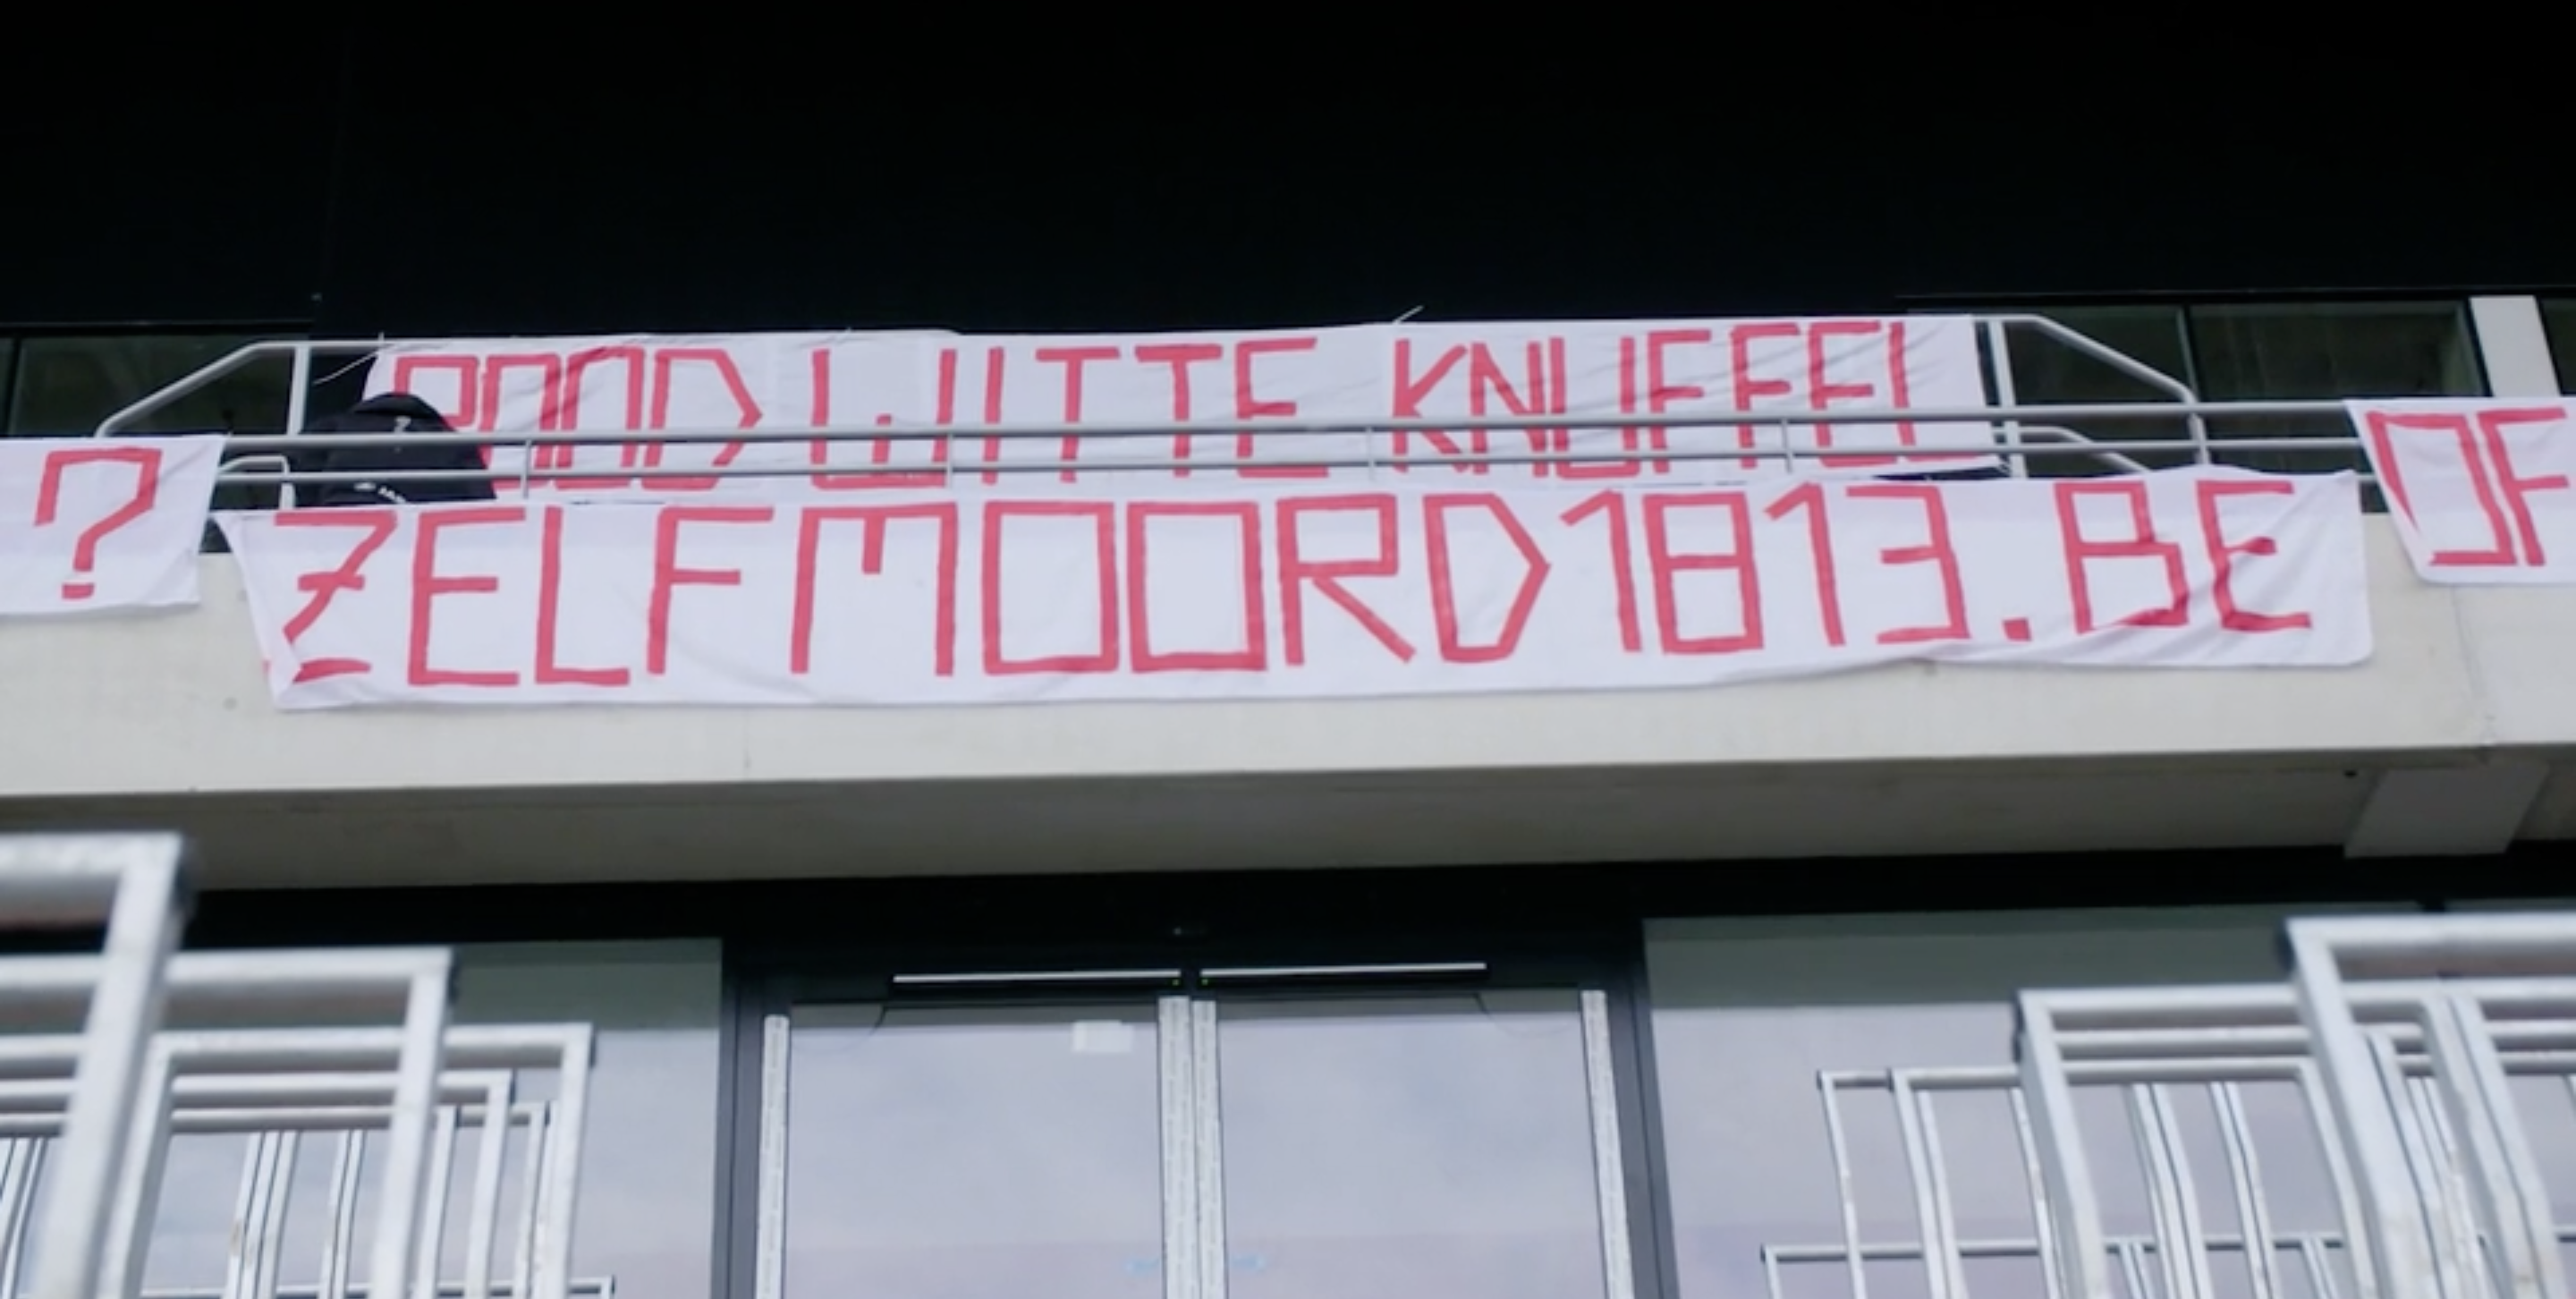 ROOD WITTE KNUFFEL
?
ZELFMOORD1813.BE
OF